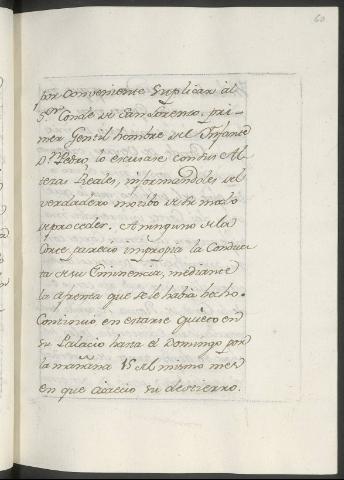 60
por conveniente suplicar al
S.or Conde de San Lorenzo, pri-
mer Gentil hombre del Infante
D.n Pedro, lo escusase con sus Al-
tezas Reales, informandoles del
verdadero motibo de su modo
de proceder. A ninguno de la
Corte pareció impropia la Conduc-
ta de su Eminencia, mediante
la afrenta que se le habia hecho.
Continuó en estarse quieto en
su Palacio hasta el Domingo por
la mañana 15 del mismo mes
en que acaeció su destierro.